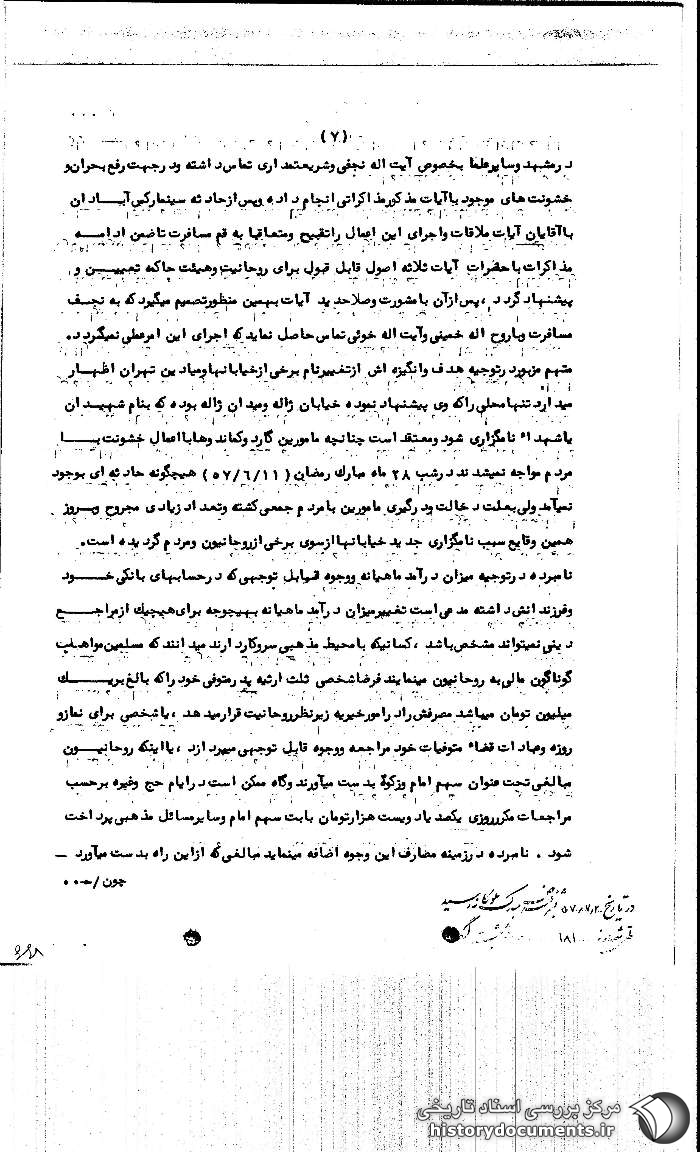 (۷)
در مشهد و سایر علما بخصوص آیت اله نجفی و شریعتمداری تماس داشته و در جهت رفع بحران و
خشونت های موجود با آیات مذکور مذاکراتی انجام داده و پس از حادثه سینما رکس آبادان
با آقایان آیات ملاقات و اجرای این اعمال را تقبیح و متعاقبا به قم مسافرت تا ضمن ادامه
مذاکرات با حضرات آیات ثلاثه اصول قابل قبول برای روحانیت و هیئت حاکمه تعیین و
پیشنهاد گردد ، پس از آن با مشورت و صلاحدید آیات بهمین منظور تصمیم میگیرد که به نجف
مسافرت و با روح اله خمینی و آیت اله خوئی تماس حاصل نماید که اجرای این امر عملی نمیگردد.
متهم مزبور در توجیه هدف و انگیزه اش از تغییر نام برخی از خیابانها و میادین تهران اظهار
میدارد تنها محلی را که وی پیشنهاد نموده خیابان ژاله و میدان ژاله بوده که بنام شهیدان
یا شهداء نامگزاری شود و معتقد است چنانچه مامورین گارد و کماندوها با اعمال خشونت با
مردم مواجه نمیشدند در شب ۲۸ ماه مبارك رمضان (۵۷/۶/۱۱) هیچگونه حادثه ای بوجود
نمیآمد ولی بعلت دخالت و درگیری مامورین با مردم جمعی کشته و تعداد زیادی مجروح و بروز
همین وقایع سبب نامگزاری جدید خیابانها از سوی برخی از روحانیون و مردم گردیده است.
نامبرده در توجیه میزان درآمد ماهیانه و وجوه قابل توجهی که در حسابهای بانکی خود
و فرزندانش داشته مدعی است تغییر میزان درآمد ماهیانه بهیچوجه برای هیچیك از مراجع
دینی نمیتواند مشخص باشد ، کسانیکه با محیط مذهبی سروکار دارند میدانند که مسلمین مواهب
گوناگون مالی به روحانیون مینمایند فرضا شخصی ثلث ارثیه پدر متوفی خود را که بالغ بر یك
میلیون تومان میباشد مصرفش را در امور خیریه زیر نظر روحانیت قرار میدهد ، یا شخصی برای نماز و
روزه و عبادات قضاء متوفیات خود مراجعه و وجوه قابل توجهی میپردازد ، یا اینکه روحانیون
مبالغی تحت عنوان سهم امام و زکوة بدست میآورند و گاه ممکن است در ایام حج و غیره برحسب
مراجعات مکرر روزی یکصد یا دویست هزار تومان بابت سهم امام و سایر مسائل مذهبی پرداخت
شود . نامبرده در زمینه مصارف این وجوه اضافه مینماید مبالغی که از این راه بدست میآورد –
چون /-۰۰۰
در تاریخ
۶۸۱
مرکز بررسی اسناد تاریخی
historydocuments.ir